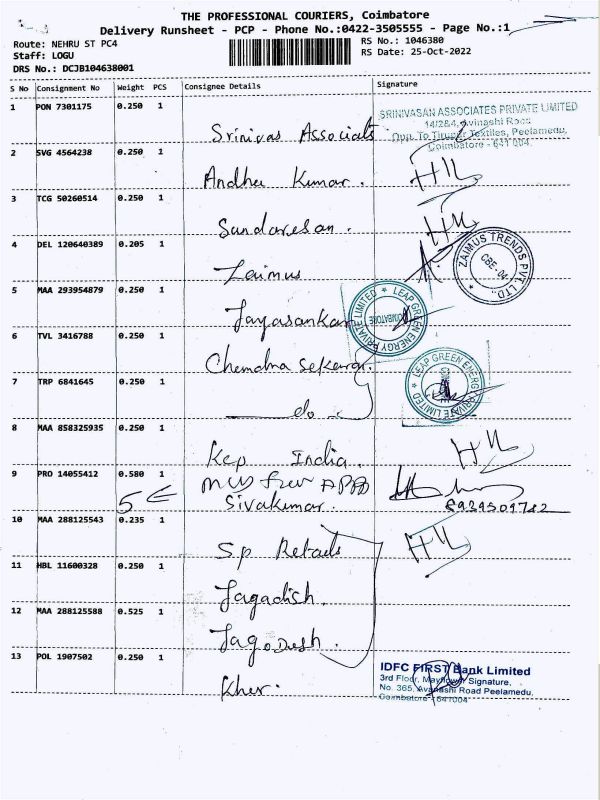 THE PROFESSIONAL COURIERS, Coimbatore
Delivery Runsheet - PCP - Phone No.:0422-3505555 - Page No.:1
Route: NEHRU ST PC4
RS No.: 1046380
Staff: LOGU
RS Date: 25-Oct-2022
DRS No.: DCJB104638001
S No Consignment No Weight PCS Consignee Details Signature
1 PON 7301175 0.250 1
SRINIVASAN ASSOCIATES PRIVATE LIMITED
14/2&4, Avinashi Road
Srinivas Associats Opp. To Tirupur Textiles, Peelamedu,
Coimbatore - 641 004.
2 SVG 4564238 0.250 1
Kumar.
3 TCG 50260514 0.250 1
Sundaresan.
4 DEL 120640389 0.205 1
Zaimus
ZAIMUS TRENDS PVT. LTD.,
CBE-04
5 MAA 293954879 0.250 1
Jayasankar
LEAP GREEN ENERGY PRIVATE LIMITED
COIMBATORE
6 TVL 3416788 0.250 1
Chendra Sekaran.
7 TRP 6841645 0.250 1
do
LEAP GREEN ENERGY PRIVATE LIMITED
8 MAA 858325935 0.250 1
Kep India
9 PRO 14055412 0.580 1
Sivakumar.
10 MAA 288125543 0.235 1
S.p Retails
11 HBL 11600328 0.250 1
Jagadish.
12 MAA 288125588 0.525 1
13 POL 1907502 0.250 1
IDFC FIRST Bank Limited
3rd Floor, Mayflower Signature,
No. 365, Avanashi Road Peelamedu,
Coimbatore - 641004